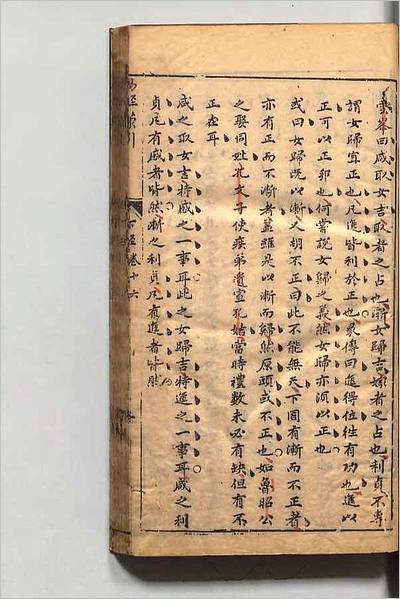 雲峯曰咸取女吉取者之占也漸女歸吉嫁者之占也利貞不專
謂女歸宜正也凡進皆利於正也彖傳曰進得位往有功也進以
正可以正邦也何嘗說女歸之義然女歸亦須以正也
或曰女歸既以漸又胡不正曰此不能無天下固有漸而不正者
亦有正而不漸者蓋雖是以漸而歸然原頭或不正也如魯昭公
之娶同姓孔文子使疾弟遺室孔姞當時禮數未必有缺但有不
正在耳
咸之取女吉特咸之一事耳此之女歸吉特進之一事耳咸之利
貞凡有感者皆然漸之利貞凡有進者皆然
易經蒙引
下經卷十六